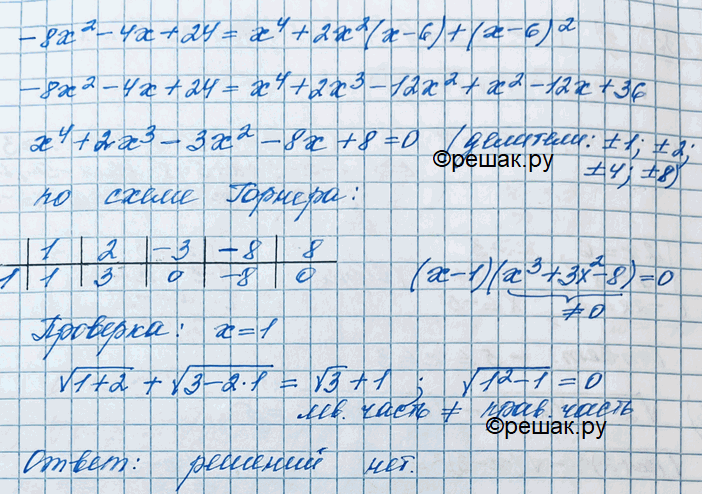 -8x² - 4x + 24 = x⁴ + 2x²(x-6) + (x-6)²
-8x² - 4x + 24 = x⁴ + 2x³ - 12x² + x² - 12x + 36
x⁴ + 2x³ - 3x² - 8x + 8 = 0 (делители: ±1; ±2;
©решак.ру ±4; ±8)
по схеме Горнера:
| 1 | 2 | -3 | -8 | 8
1 | 1 | 3 | 0 | -8 | 0
(x-1)(x³ + 3x² - 8) = 0
≠ 0
Проверка: x = 1
√(1+2) + √(3-2·1) = √3 + 1 ; √(1²-1) = 0
лев. часть ≠ прав. часть
©решак.ру
Ответ: решений нет.